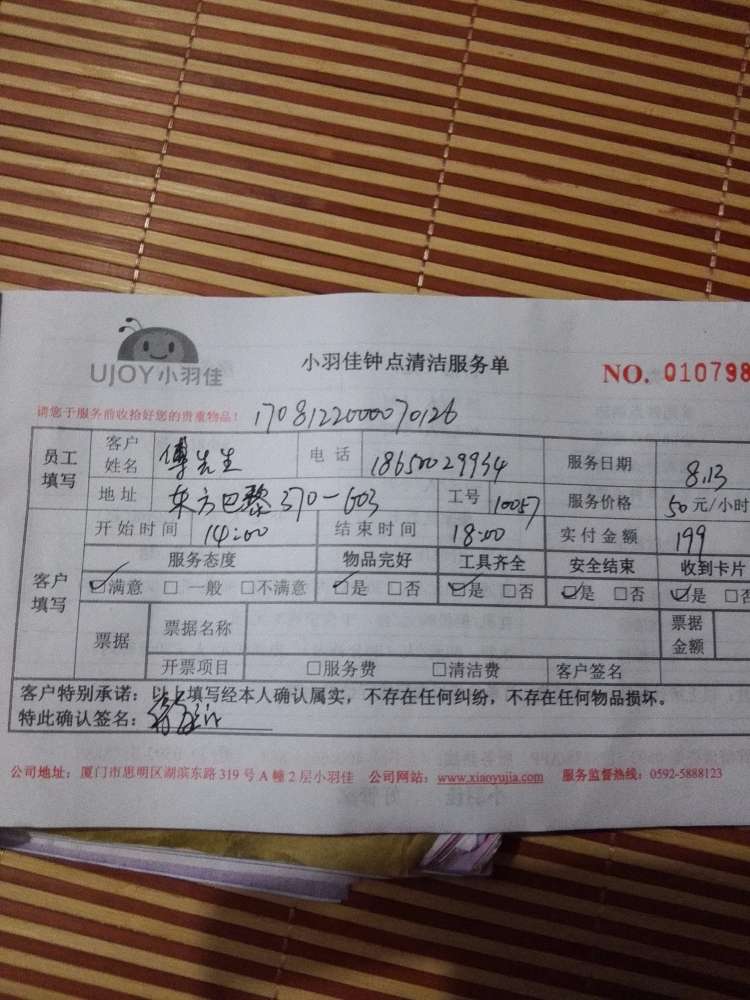 UJOY小羽佳
小羽佳钟点清洁服务单
NO. 010798
请您于服务前收拾好您的贵重物品!
170812200070126
员工填写 客户姓名 傅先生 电话 18650029934 服务日期 8.13
地址 东方巴黎370-603 工号 10057 服务价格 50元/小时
客户填写 开始时间 14:00 结束时间 18:00 实付金额 199
服务态度 物品完好 工具齐全 安全结束 收到卡片
☑满意 □一般 □不满意 ☑是 □否 ☑是 □否 ☑是 □否 ☑是 □否
票据 票据名称 票据金额
开票项目 □服务费 □清洁费 客户签名
客户特别承诺：以上填写经本人确认属实，不存在任何纠纷，不存在任何物品损坏。
特此确认签名：
公司地址：厦门市思明区湖滨东路319号A幢2层小羽佳 公司网站：www.xiaoyujia.com 服务监督热线：0592-5888123